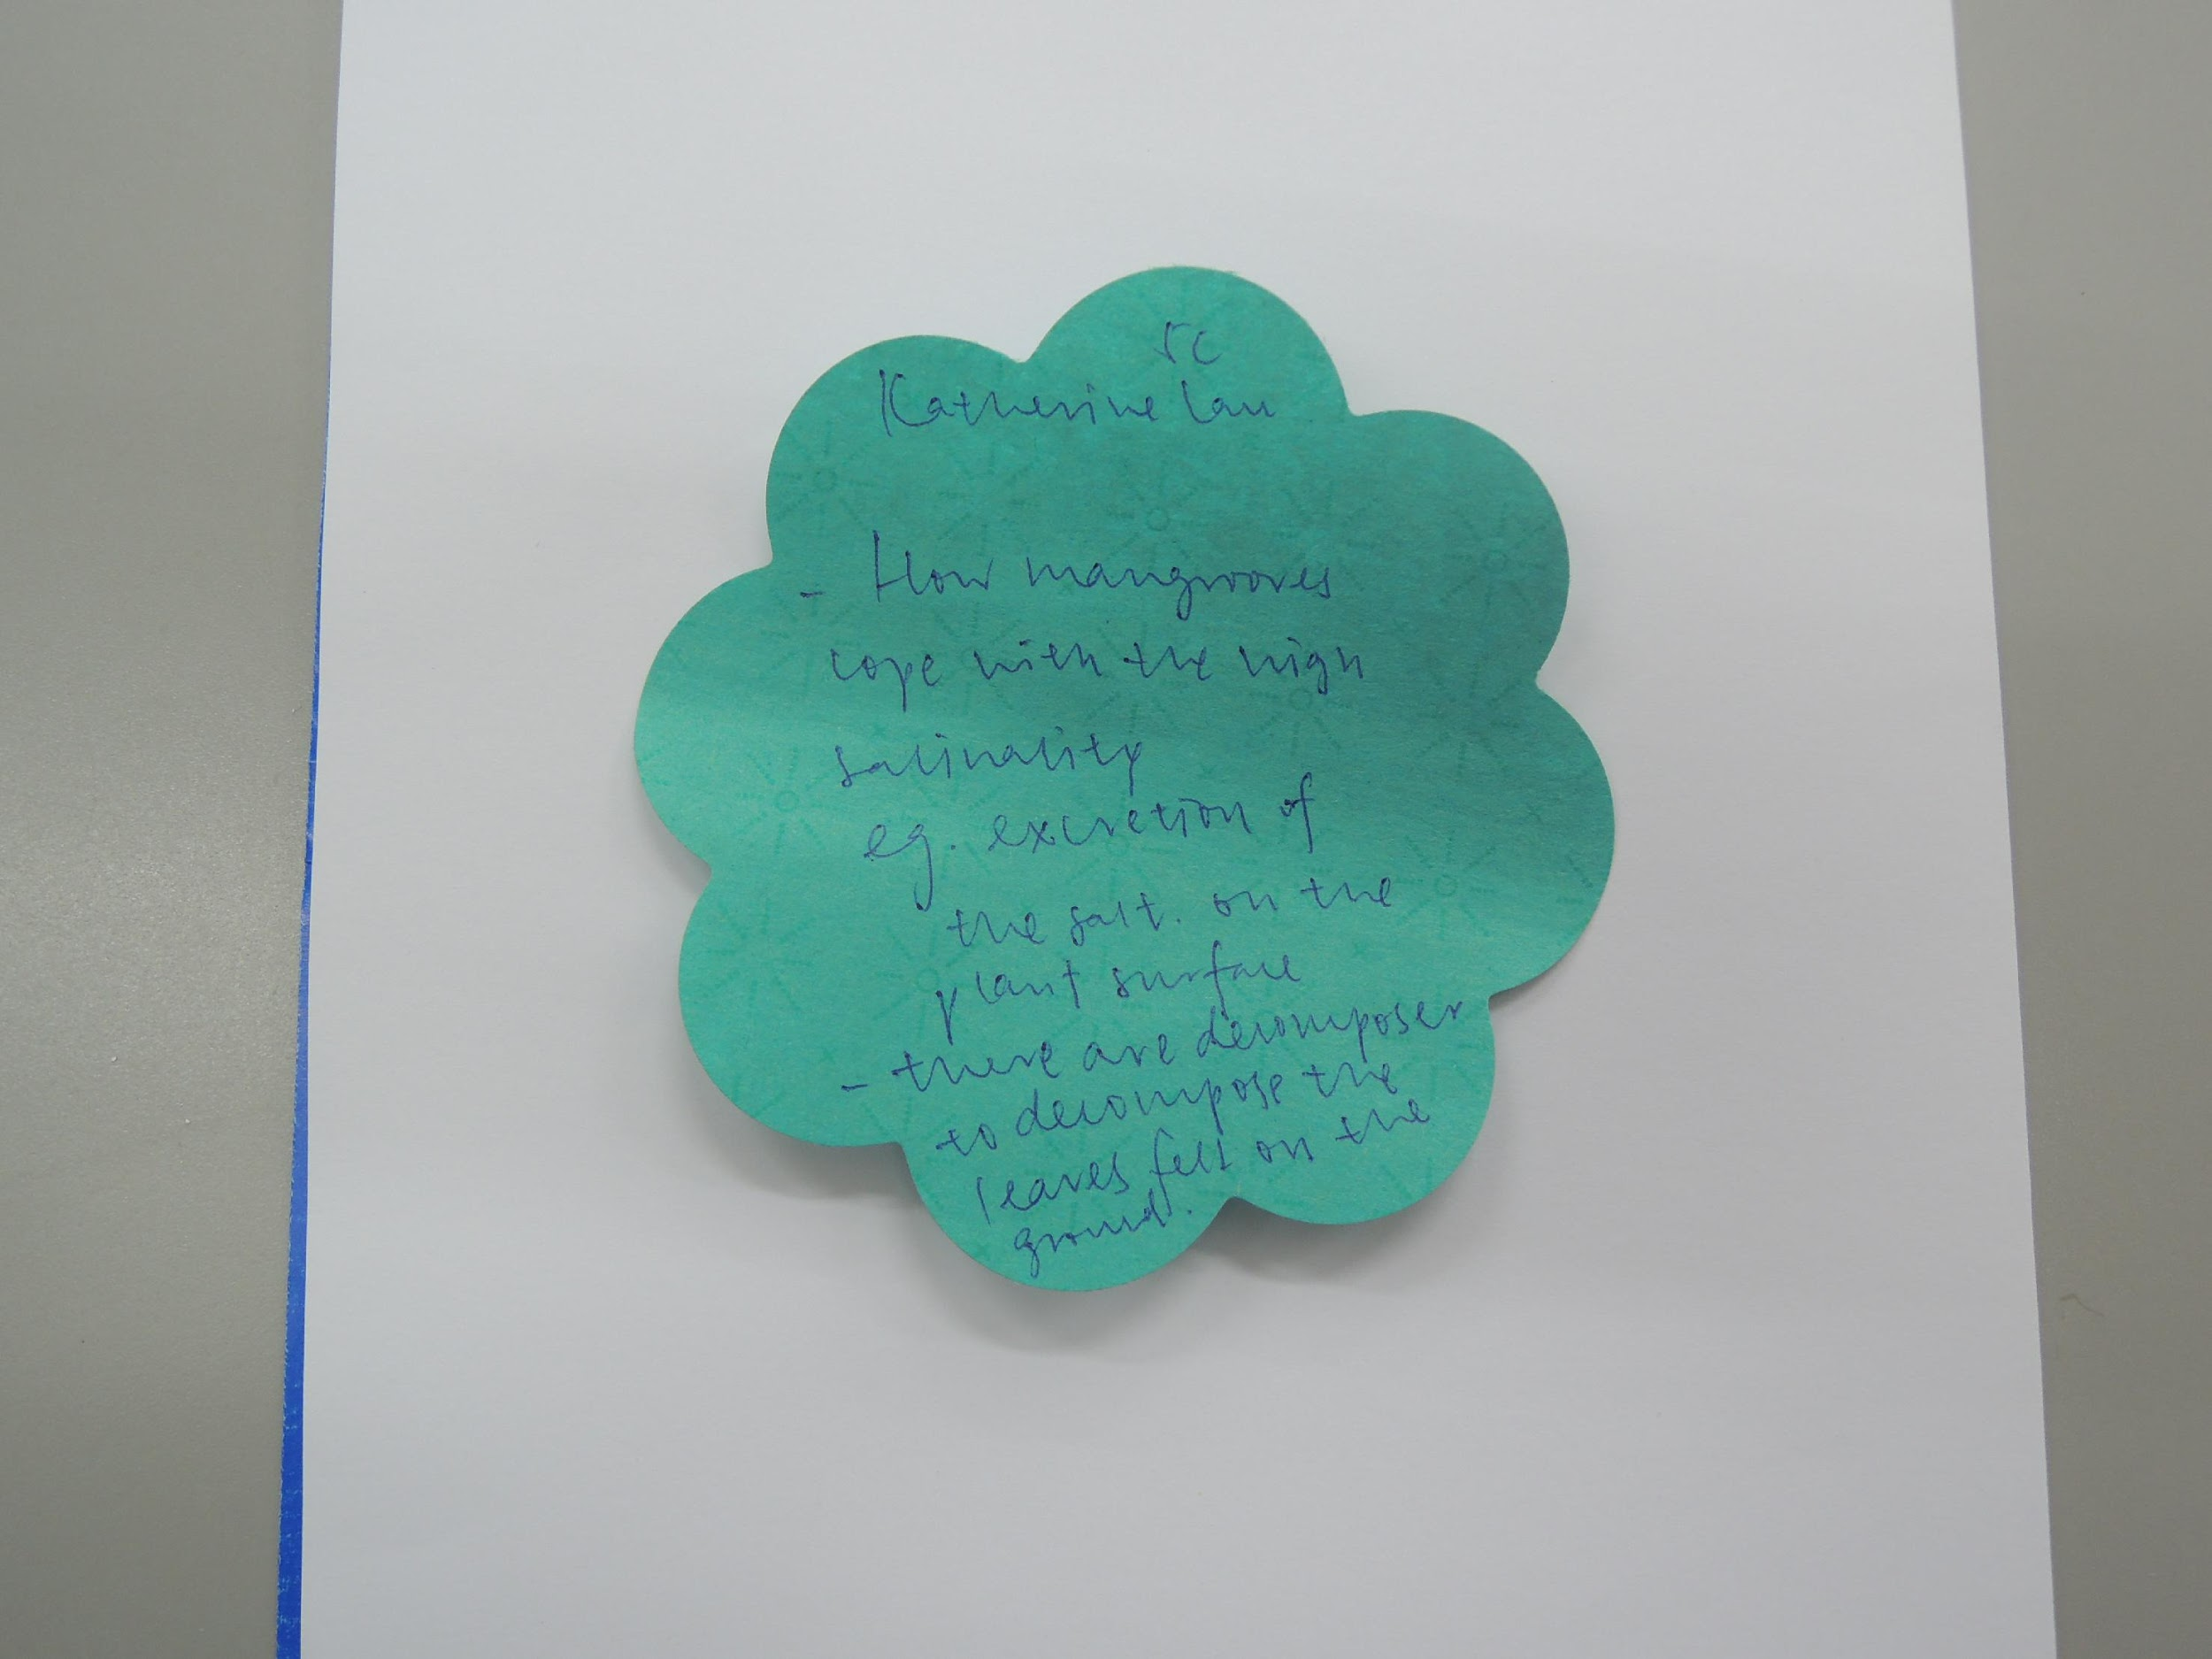 5C
Katherine Lau
- How mangrooves
cope with the high
salinality
eg. excretion of
the salt. on the
plant surface
- there are decomposer
to decompose the
leaves felt on the
ground.